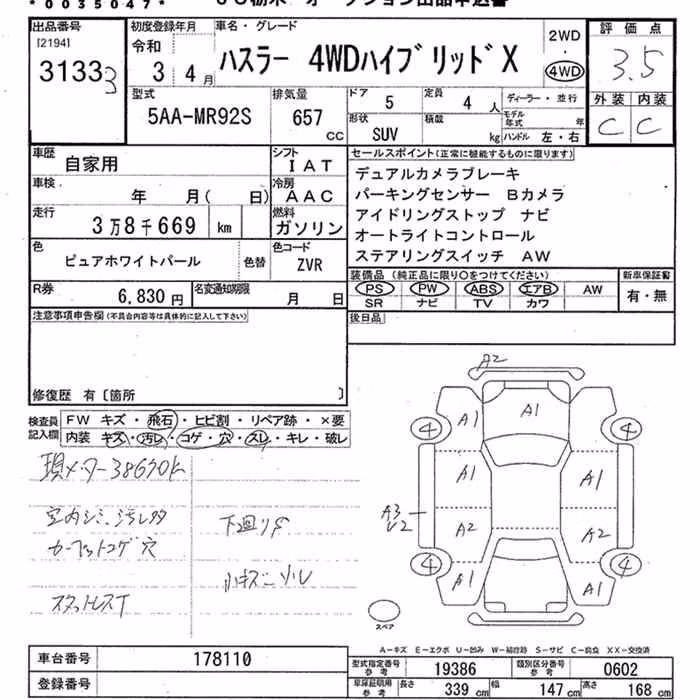 *0035047*
出品番号
[2194]
3133
初度登録年月
令和
3 4月
車名・グレード
ハスラー 4WDハイブリッドX
2WD
・
4WD
評価点
3.5
外装 内装
C C
型式
5AA-MR92S
排気量
657
CC
ドア 5
定員 4人
ディーラー・並行
形状 SUV
積載 kg
モデル年式 年
ハンドル 左・右
車歴 自家用
シフト IAT
車検 年 月( 日)
冷房 AAC
走行 3万8千669 km
燃料 ガソリン
色 ピュアホワイトパール
色替
色コード ZVR
R券 6,830円
名変通知期限 月 日
セールスポイント(正常に機能するものに限ります)
デュアルカメラブレーキ
パーキングセンサー Bカメラ
アイドリングストップ ナビ
オートライトコントロール
ステアリングスイッチ AW
装備品 (純正品に限り○をつけてください)
PS PW ABS エアB AW
SR ナビ TV カワ
新車保証書
有・無
後日品
注意事項申告欄(不具合内容等は具体的に記入して下さい)
修復歴 有〔箇所 〕
検査員記入欄
FW キズ・飛石・ヒビ割・リペア跡・×要
内装 キズ・汚レ・コゲ・穴・スレ・キレ・破レ
現メーター38670k
室内シミ、汚レ多
カーフットコゲ穴
下廻りS
小キズ小凹
スタットレスT
A2
A1
A1
A1
4
4
A1
A1
A3
U2
A2
A2
4
4
A1
A1
スペア
A-キズ E-エクボ U-凹み W-補修跡 S-サビ C-腐食 XX-交換済
車台番号 178110
登録番号
型式指定番号参考 19386
類別区分番号参考 0602
車庫証明用参考 長さ 339cm 幅 147cm 高さ 168cm